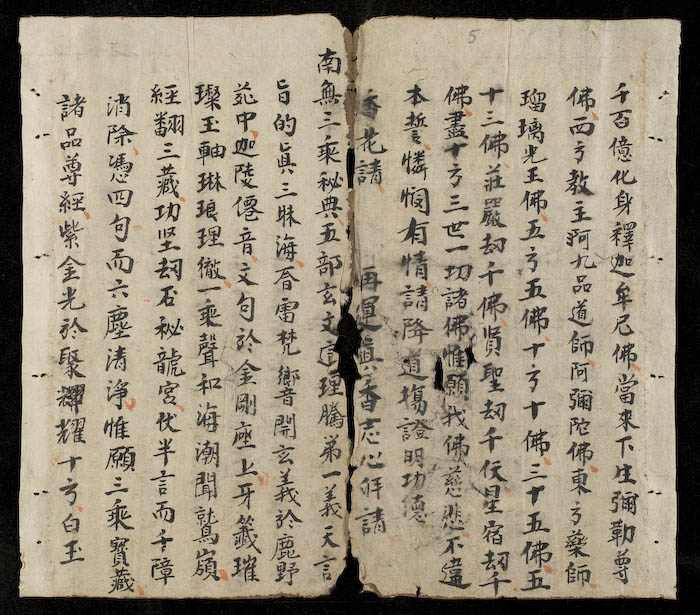 5
千百億化身釋迦牟尼佛當來下生彌勒尊
佛西方教主阿九品道師阿彌陀佛東方藥師
瑠璃光王佛五方五佛十方十佛三十五佛五
十三佛莊嚴刼千佛賢聖刼千佛星宿刼千
佛盡十方三世一切諸佛惟願我佛慈悲不違
本誓憐憫有情請降道塲證明功德
香花請 再運眞香志心奉請
南無三乘秘典五部玄文理騰第一義天言
旨的眞三昧海音雷梵響開玄義於鹿野
苑中迦陵僊音文句於金剛座上牙籤璀
璨玉軸琳琅理徹一乘聲和海潮聞鷲嶺
經翻三藏功坚刼石秘龍宮伏半言而千障
消除憑四句而六塵清淨惟願三乘寳藏
諸品尊經紫金光於聚耀十方白玉